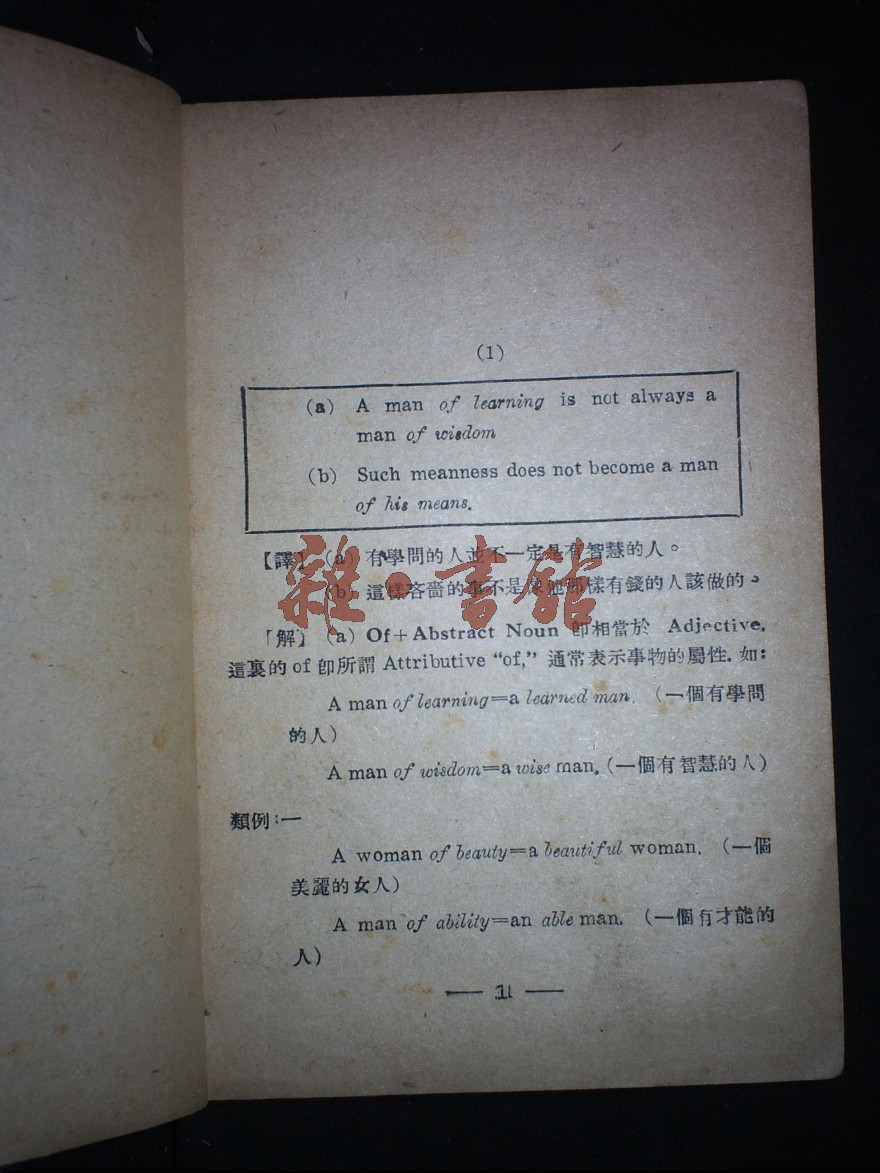 (1)
(a) A man of learning is not always a
man of wisdom
(b) Such meanness does not become a man
of his means.
【譯】(a) 有學問的人並不一定是有智慧的人。
(b) 這樣吝嗇的事不是像他那樣有錢的人該做的。
「解】(a) Of+Abstract Noun 卽相當於 Adjective.
這裏的 of 卽所謂 Attributive “of,” 通常表示事物的屬性. 如:
A man of learning=a learned man. (一個有學問
的人)
A man of wisdom=a wise man. (一個有智慧的人)
類例:一
A woman of beauty=a beautiful woman. (一個
美麗的女人)
A man of ability=an able man. (一個有才能的
人)
— 1 —
雜·書館